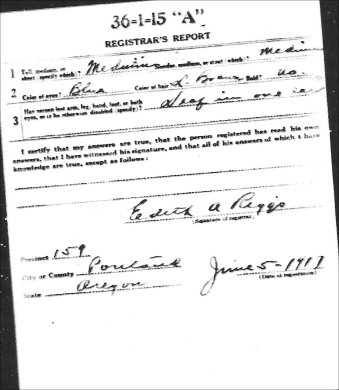 36-1-15 "A"
REGISTRAR'S REPORT
1 Tall, medium, or short (specify which)? Medium Slender, medium, or stout (which)? Medium
2 Color of eyes? Blue Color of hair? L. Brown Bald? no.
3 Has person lost arm, leg, hand, foot, or both eyes, or is he otherwise disabled (specify)? Deaf in one ear
I certify that my answers are true, that the person registered has read his own
answers, that I have witnessed his signature, and that all of his answers of which I have
knowledge are true, except as follows:
Edith A Riggs
(Signature of registrar)
Precinct 159
City or County Portland
State Oregon
June 5-1917
(Date of registration)